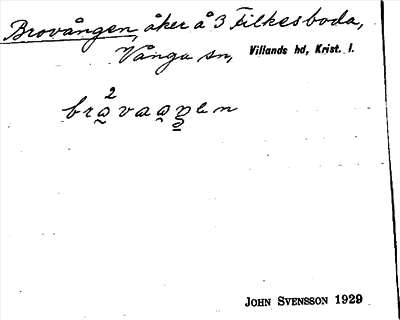 Brovången, åker å 3 Filkesboda,
Vånga sn, Villands hd, Krist. l.
2
JOHN SVENSSON 1929